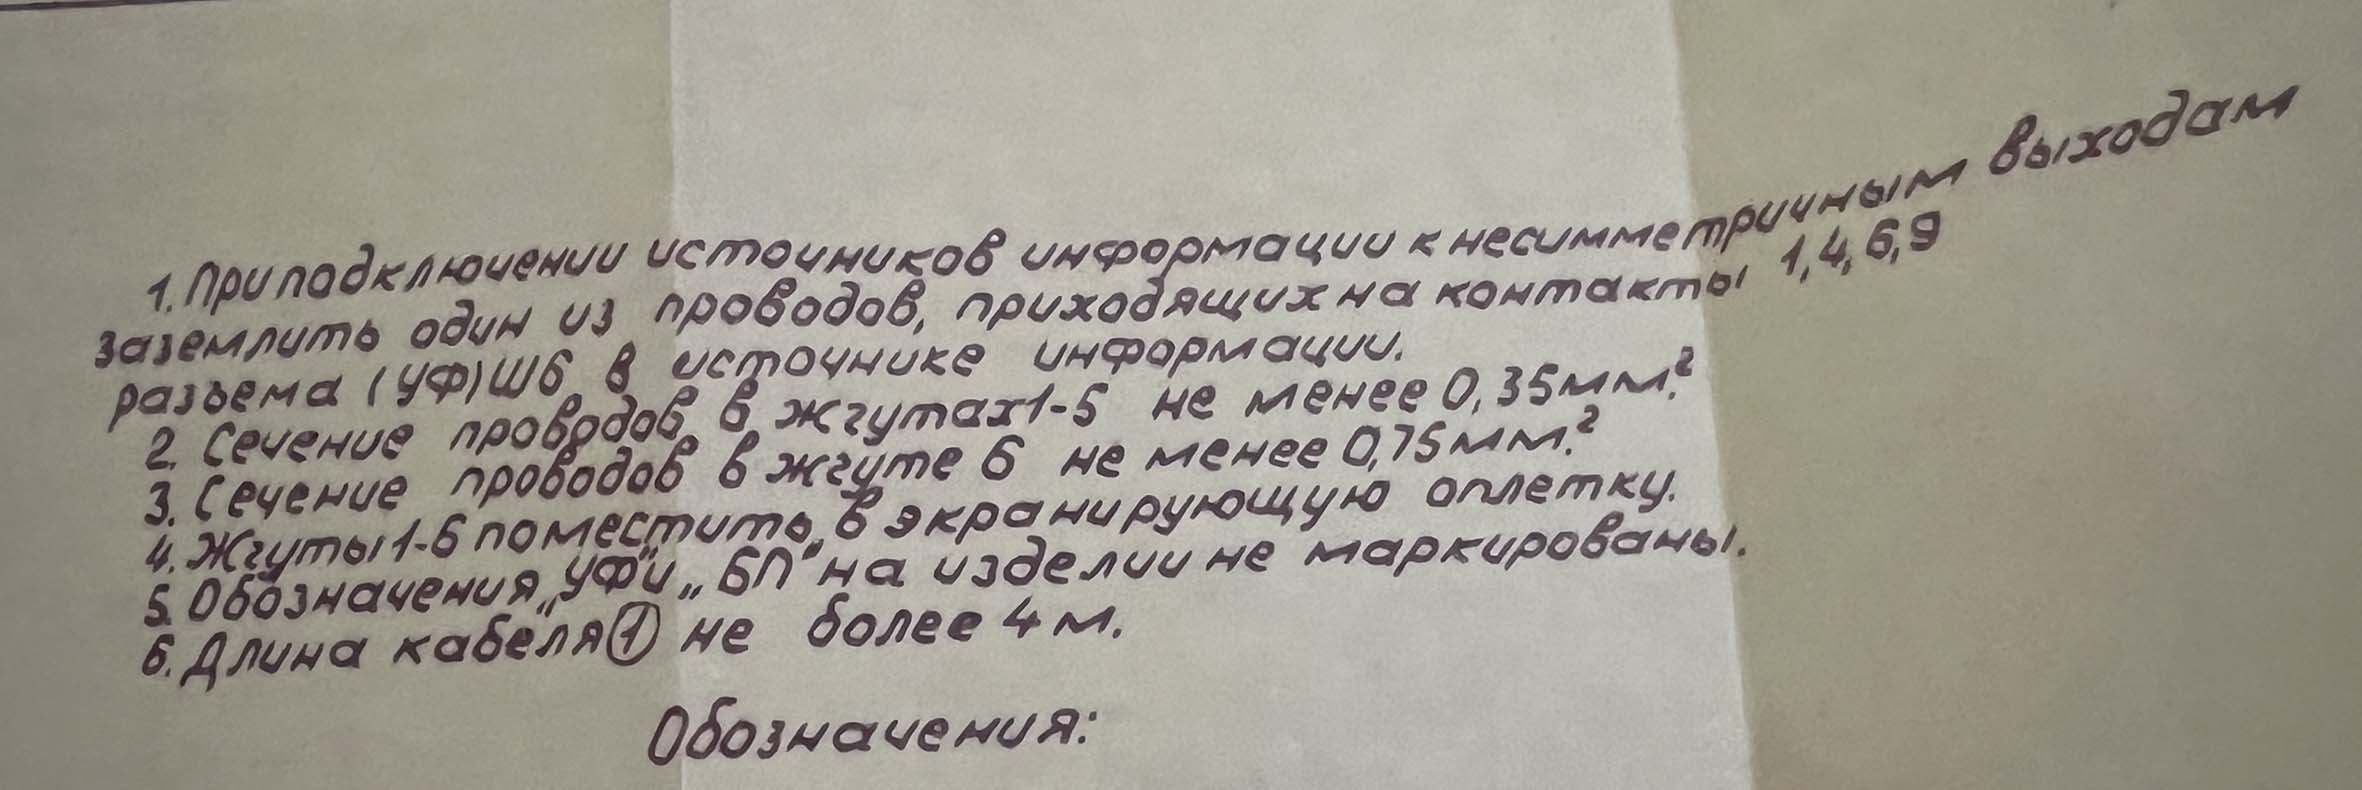 1. При подключении источников информации к несимметричным выходам
заземлить один из проводов, приходящих на контакты 1,4,6,9
разъема (УФ)Ш6 в источнике информации.
2. Сечение проводов в жгутах 1-5 не менее 0,35мм.²
3. Сечение проводов в жгуте 6 не менее 0,75мм.²
4. Жгуты 1-6 поместить в экранирующую оплетку.
5. Обозначения „УФ" и „БП" на изделии не маркированы.
6. Длина кабеля ① не более 4м.
Обозначения: